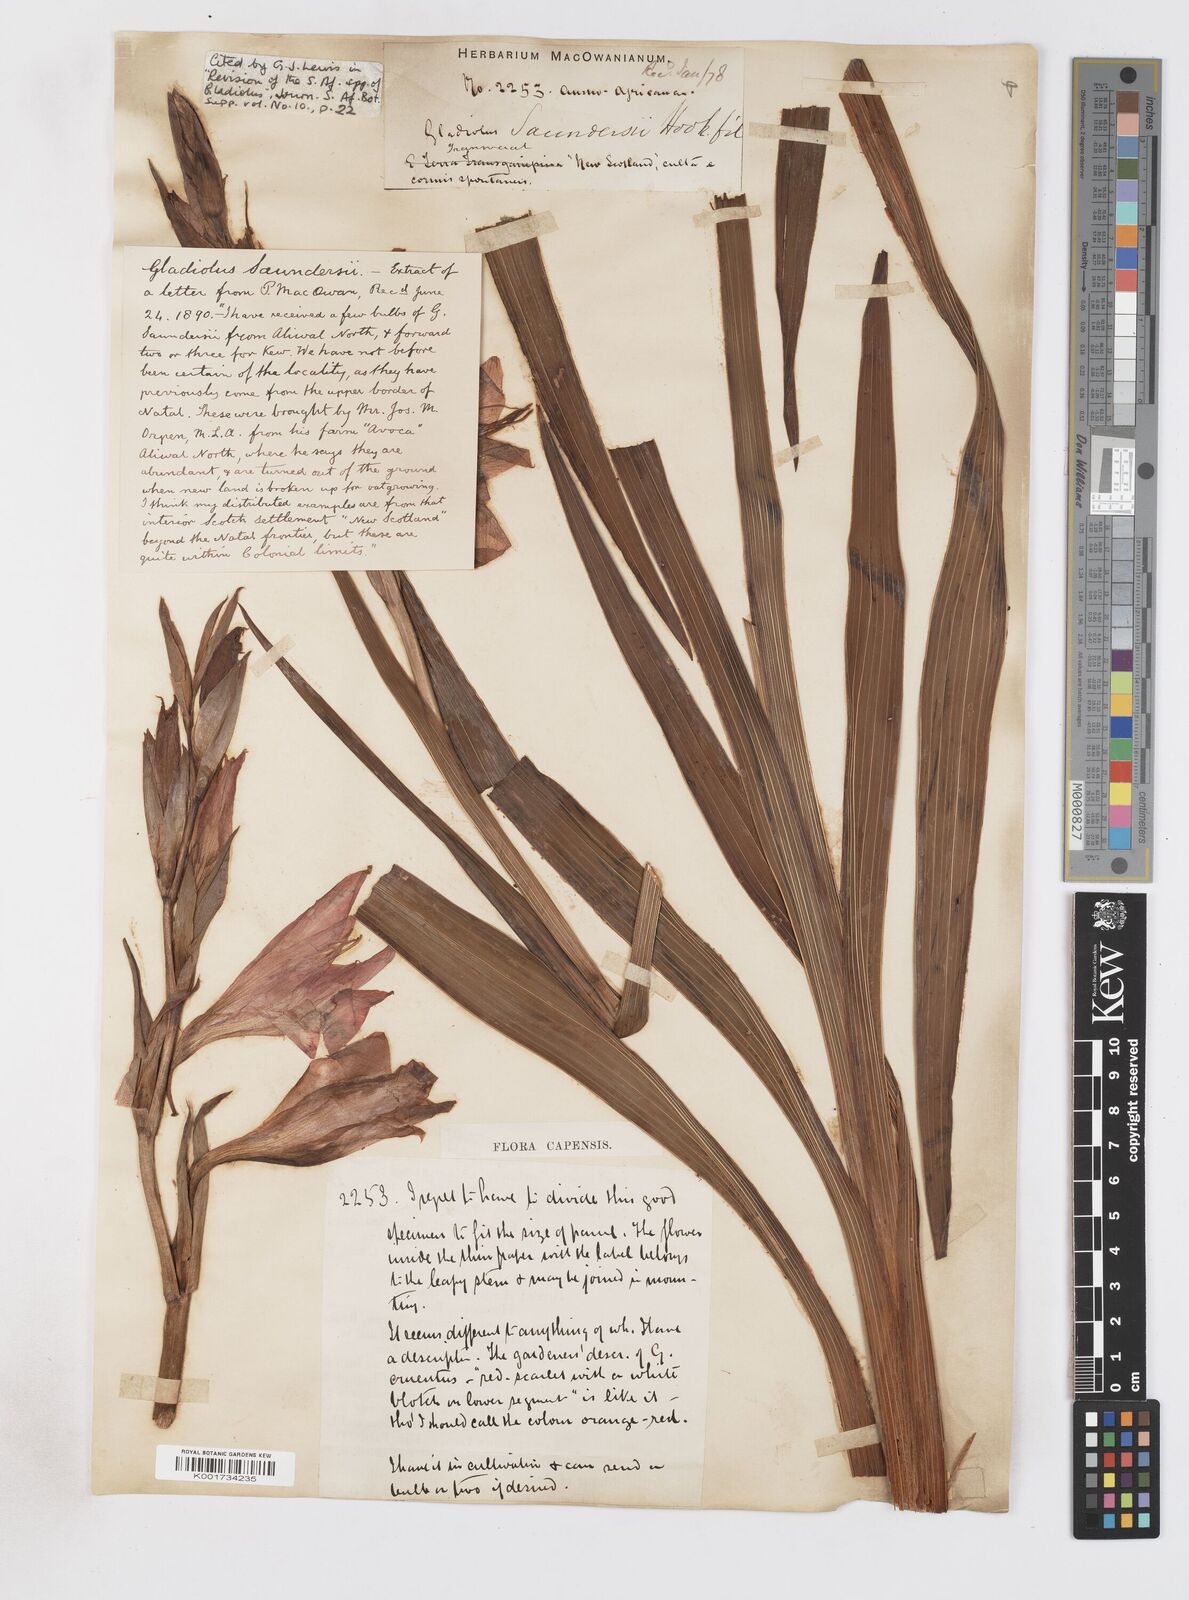 Cited by G. J. Lewis in
"Revision of the S. Af. spp. of
Gladiolus", Journ. S. Af. Bot.
Supp. vol. No. 10., p. 22
HERBARIUM MACOWANIANUM.
Rec. Jan/78
No. 2253. Austro-Africanae.
Gladiolus Saundersii Hook.fil
Transvaal
E Terra Transgariepina "New Scotland", culta e
cormis spontaneis.
Gladiolus Saundersii. – Extract of
a letter from P. MacOwan, Rec.d June
24. 1890. – "I have received a few bulbs of G.
Saundersii from Aliwal North, & forward
two or three for Kew. We have not before
been certain of the locality, as they have
previously come from the upper border of
Natal. These were brought by Mr. Jos. M.
Orpen, M.L.A. from his farm "Avoca"
Aliwal North, where he says they are
abundant, & are turned out of the ground
when new land is broken up for oatgrowing.
I think my distributed examples are from that
interior Scotch settlement "New Scotland"
beyond the Natal frontier, but these are
quite within Colonial limits."
FLORA CAPENSIS.
2253. I regret to have to divide this good
specimen to fit the size of parcel. The flower
inside the thin paper with the label belongs
to the leafy stem & may be joined in moun-
ting.
It seems different to anything of wh. I have
a descriptn. The gardeners' descr. of G.
cruentus – "red-scarlet with a white
blotch on lower segment" is like it –
tho' I should call the colour orange-red.
I have it in cultivation & can send a
bulb or two if desired.
ROYAL BOTANIC GARDENS KEW
K001734235
inches
centimetres
Don Williams
M000827
Kew
Royal Botanic Gardens
copyright reserved
0 1 2 3 4 5 6 7 8 9 10
cm